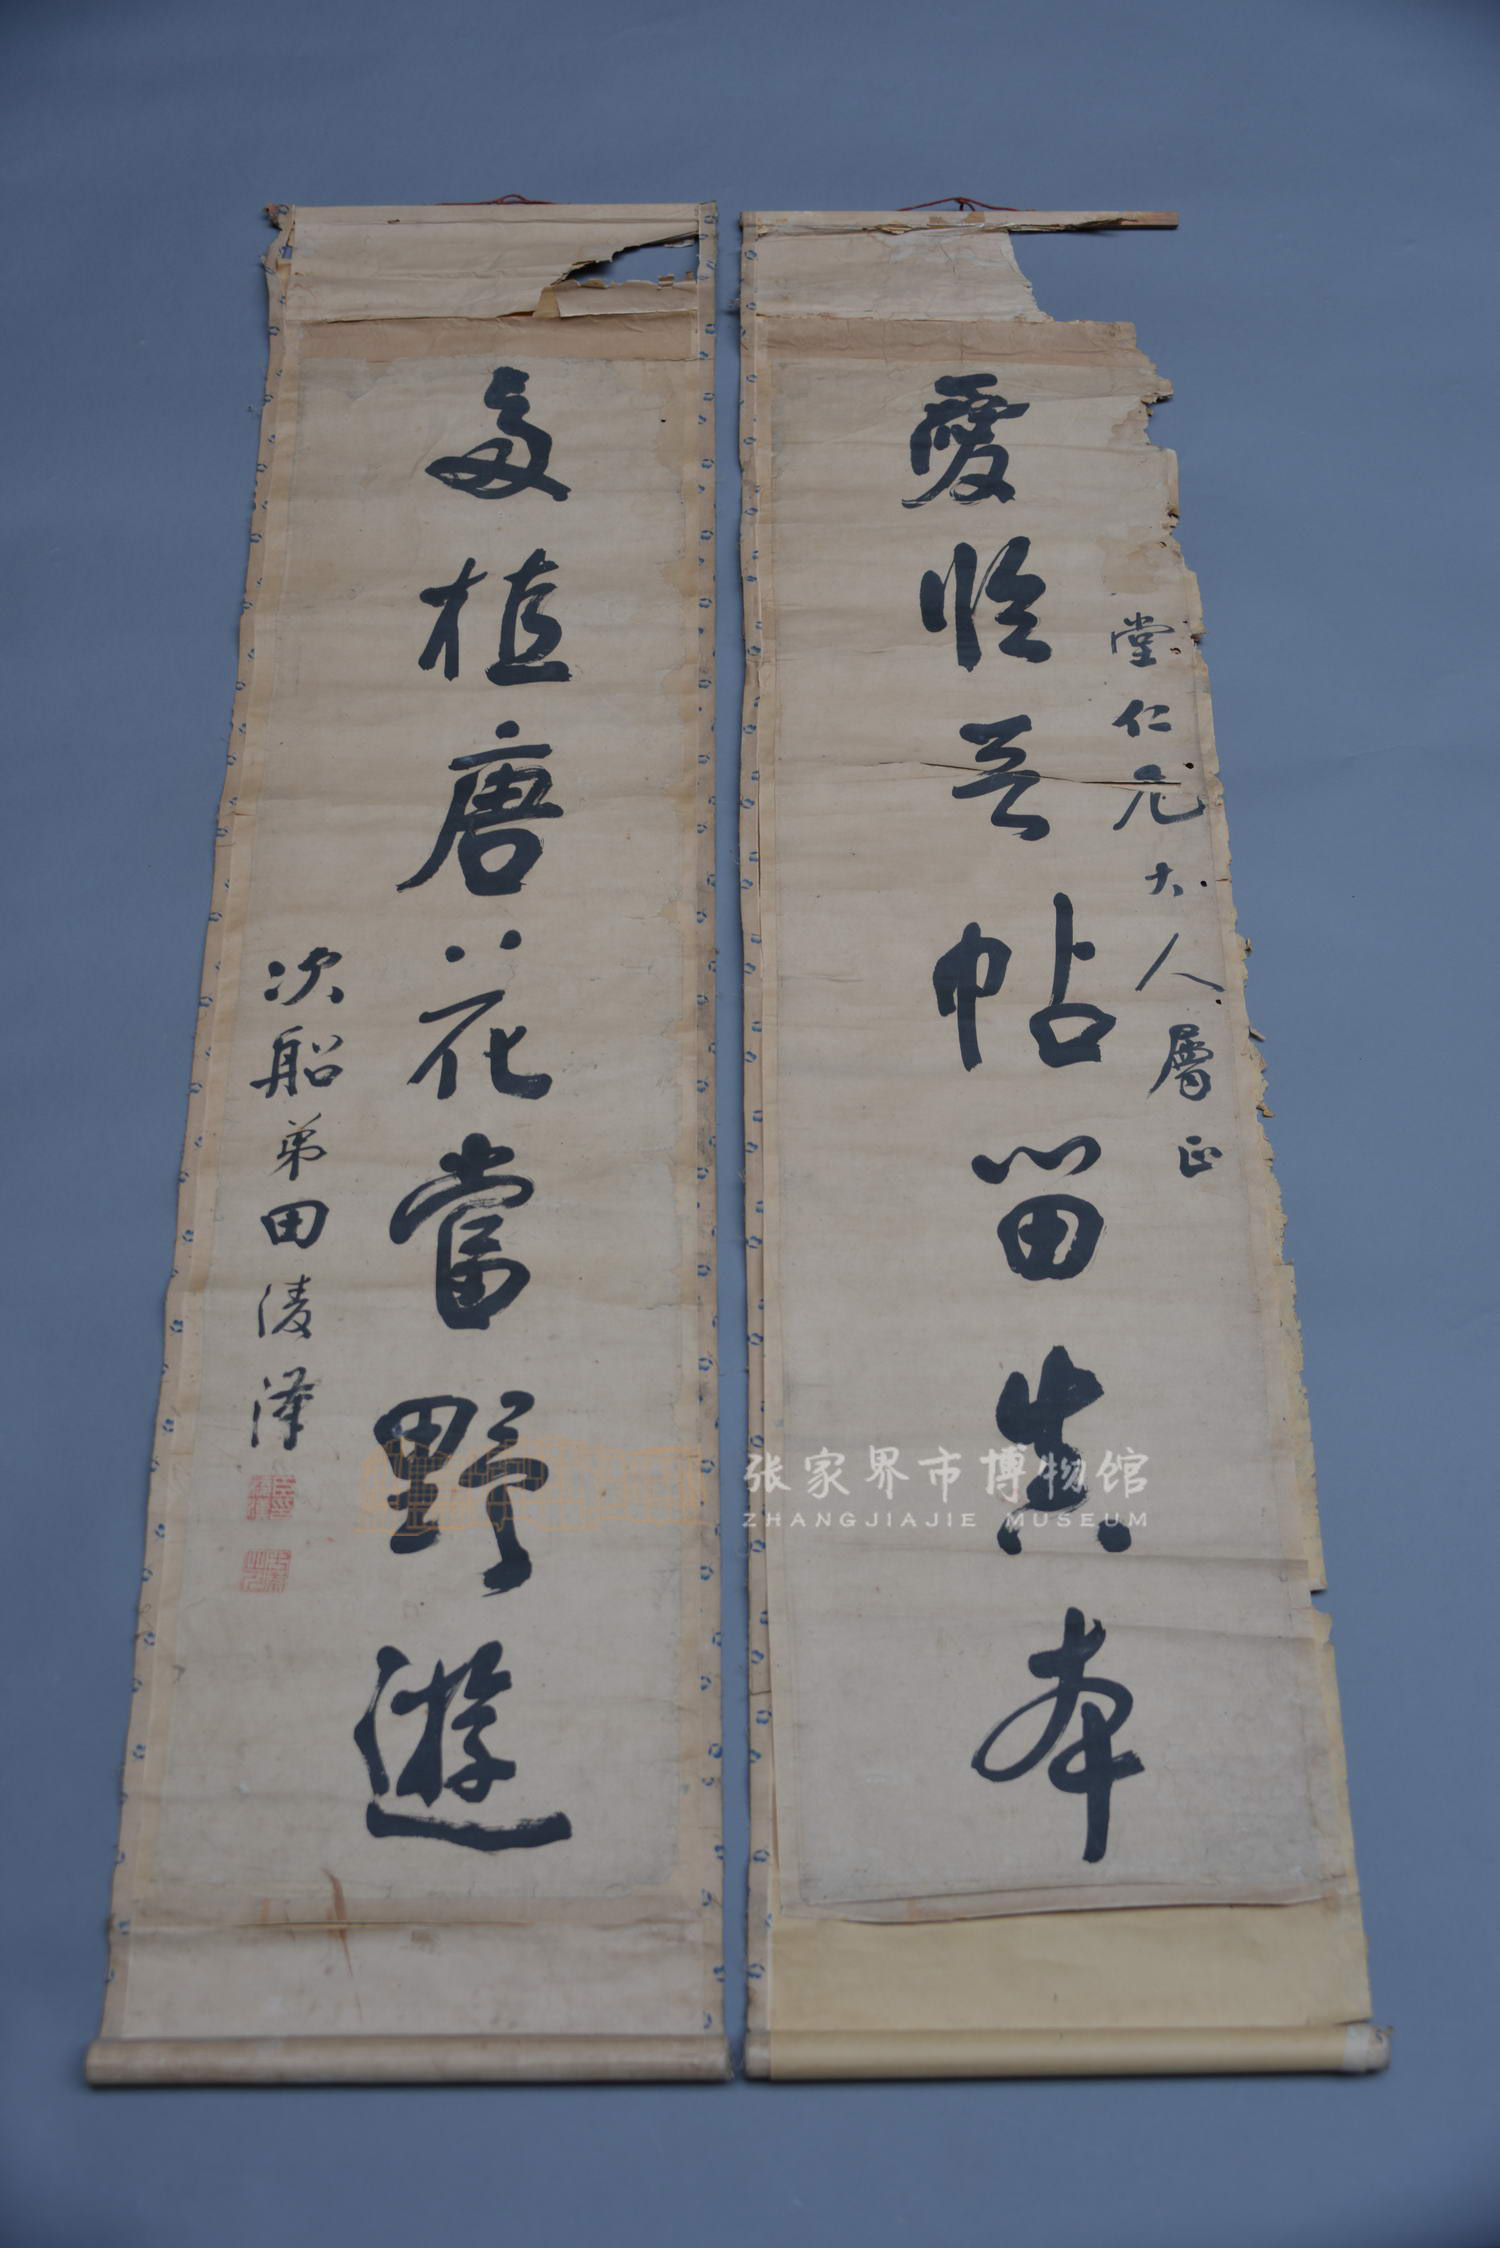 愛臨晉帖留真本
堂仁兄大人屬正
多植唐花當野遊
次船弟田淩漢
张家界市博物馆
ZHANGJIAJIE MUSEUM